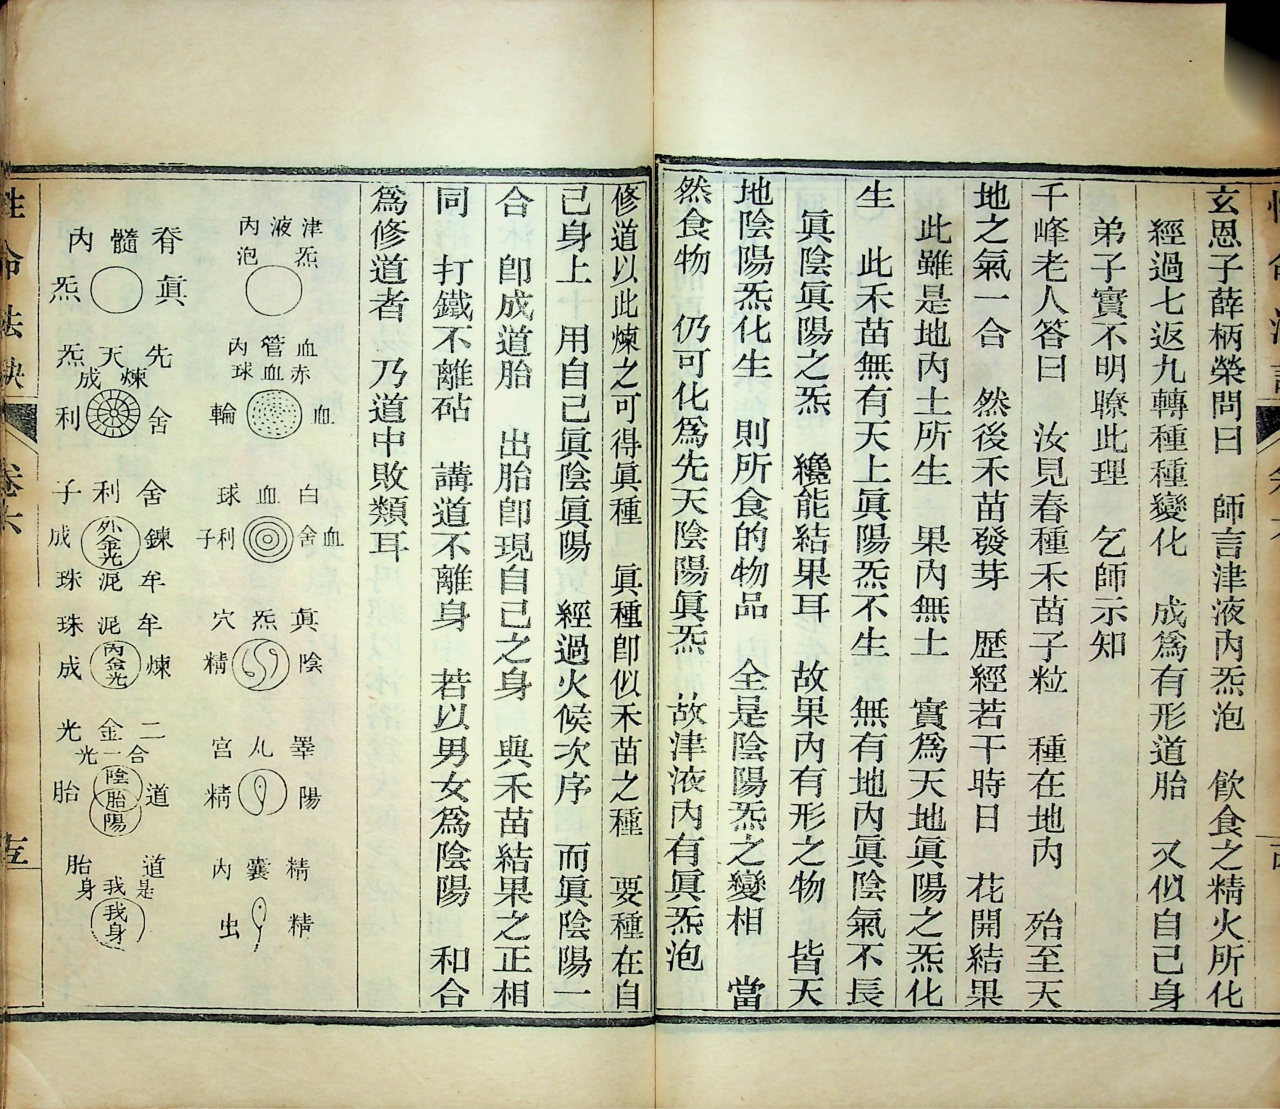 玄恩子薛柄榮問曰　師言津液內炁泡　飲食之精火所化
經過七返九轉種種變化　成爲有形道胎　又似自己身
弟子實不明瞭此理　乞師示知
千峰老人答曰　汝見春種禾苗子粒　種在地內　殆至天
地之氣一合　然後禾苗發芽　歷經若干時日　花開結果
此雖是地內土所生　果內無土　實爲天地眞陽之炁化
生　此禾苗無有天上眞陽炁不生　無有地內眞陰氣不長
眞陰眞陽之炁　纔能結果耳　故果內有形之物　皆天
地陰陽炁化生　則所食的物品　全是陰陽炁之變相　當
然食物　仍可化爲先天陰陽眞炁　故津液內有眞炁泡
修道以此煉之可得眞種　眞種卽似禾苗之種　要種在自
己身上　用自己眞陰眞陽　經過火候次序　而眞陰陽一
合　卽成道胎　出胎卽現自己之身　與禾苗結果之正相
同　打鐵不離砧　講道不離身　若以男女爲陰陽　和合
爲修道者　乃道中敗類耳
津液內
炁泡
血管內
赤血球
血輪
白血球
血舍利子
眞炁穴
陰精
睪丸宮
陽精
精囊內
精虫
脊髓內
眞炁
先天炁
煉成
舍利
舍利子
鍊成
外金光
牟泥珠
牟泥珠
煉成
內金光
二金光
合一光
道胎
陰
胎
陽
道胎
是我身
我身
性命法訣
卷六